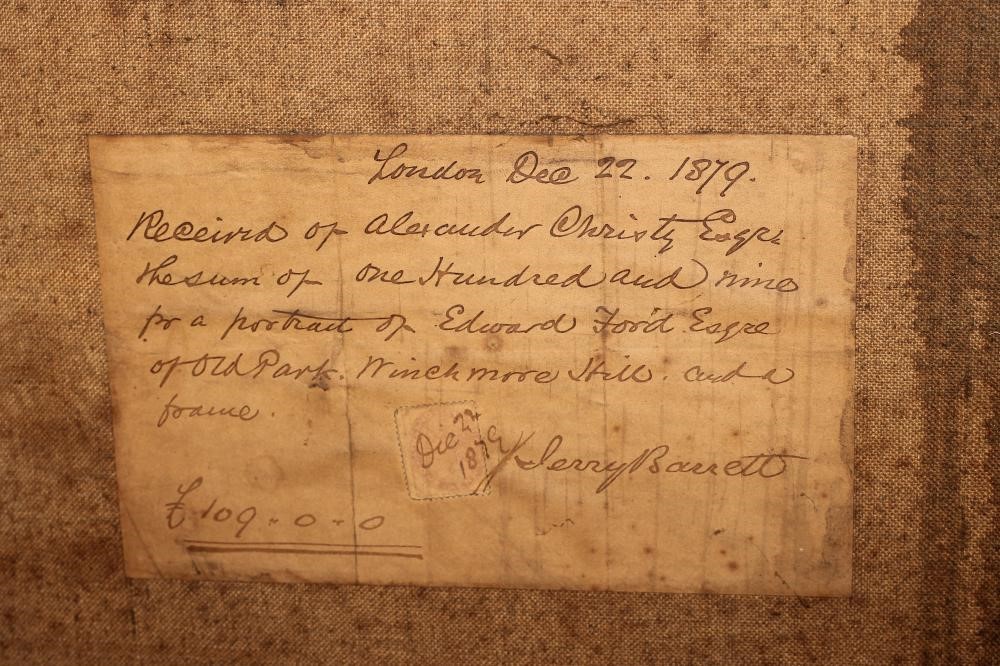 London Dec 22. 1879.
Received of Alexander Christy Esqre
the sum of one Hundred and nine
for a portrait of Edward Ford Esqre
of Old Park. Winchmore Hill. and a
frame.
Dec 22
1879
Jerry Barrett
£109-0-0